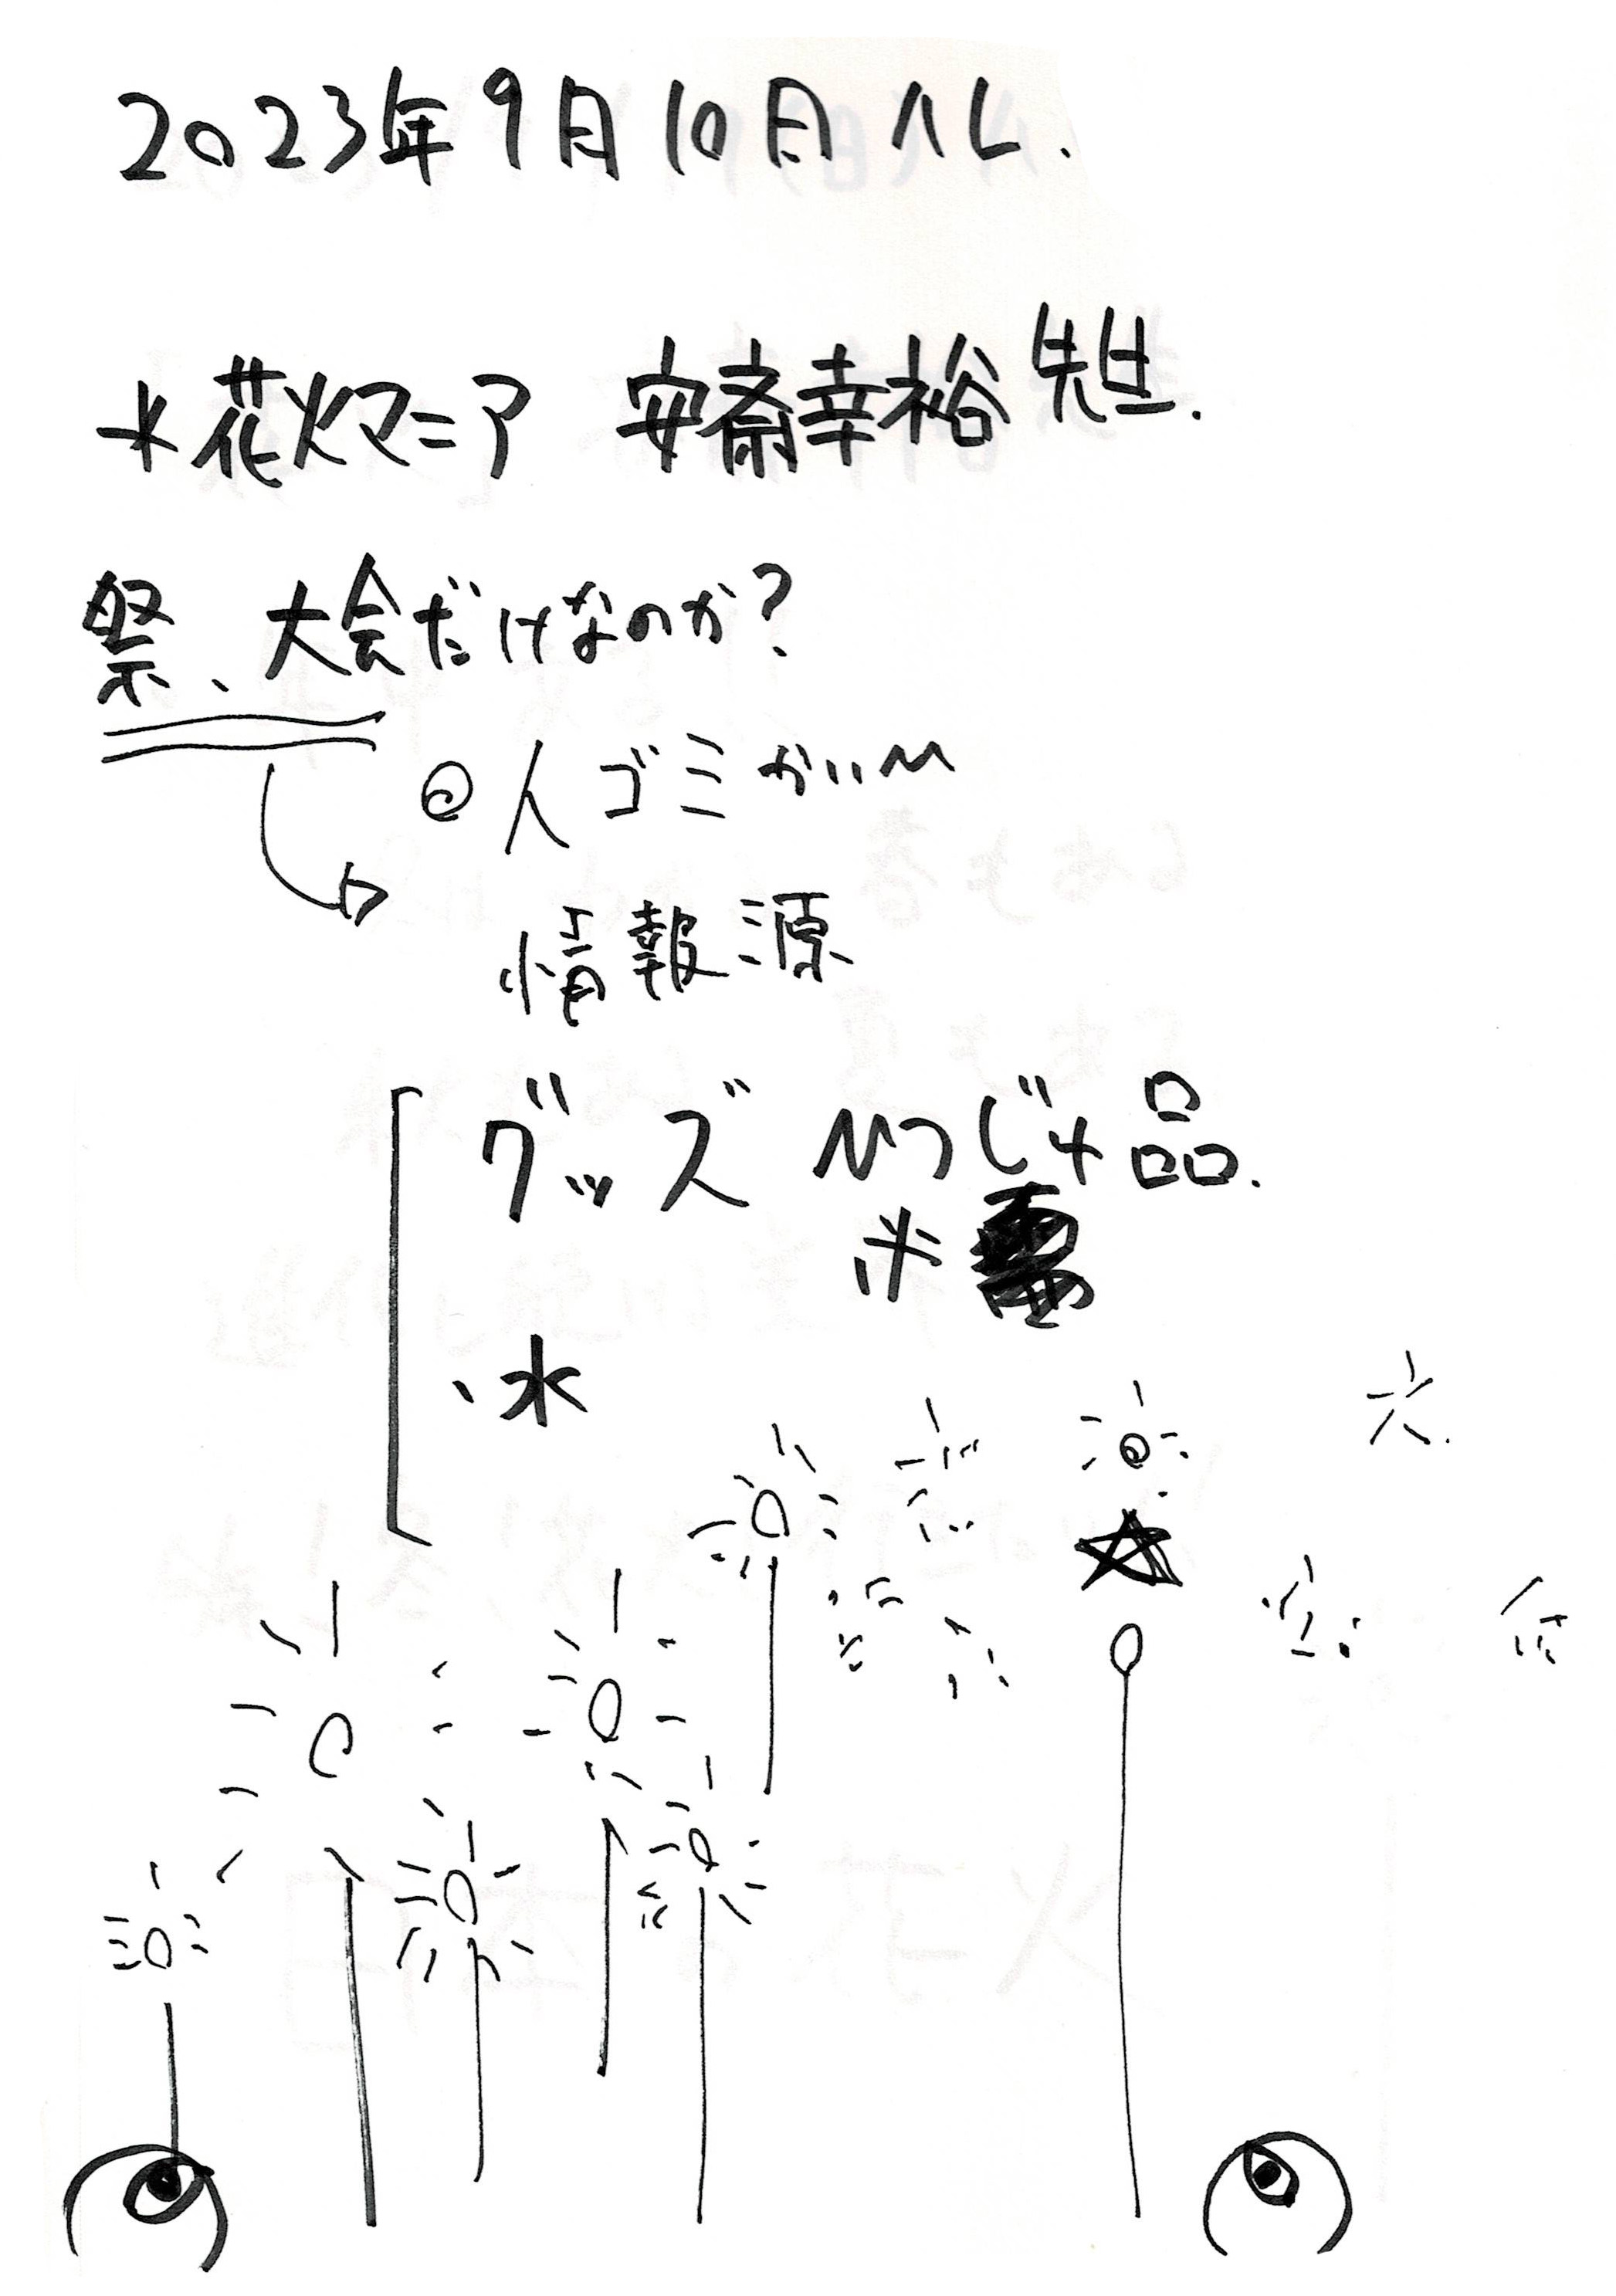 2023年9月10日 ハレ.
*花火マニア 安斎幸裕先生.
祭、大会だけなのか?
◎人ゴミ
情報源
グッズ ひつじゅ品.
、水